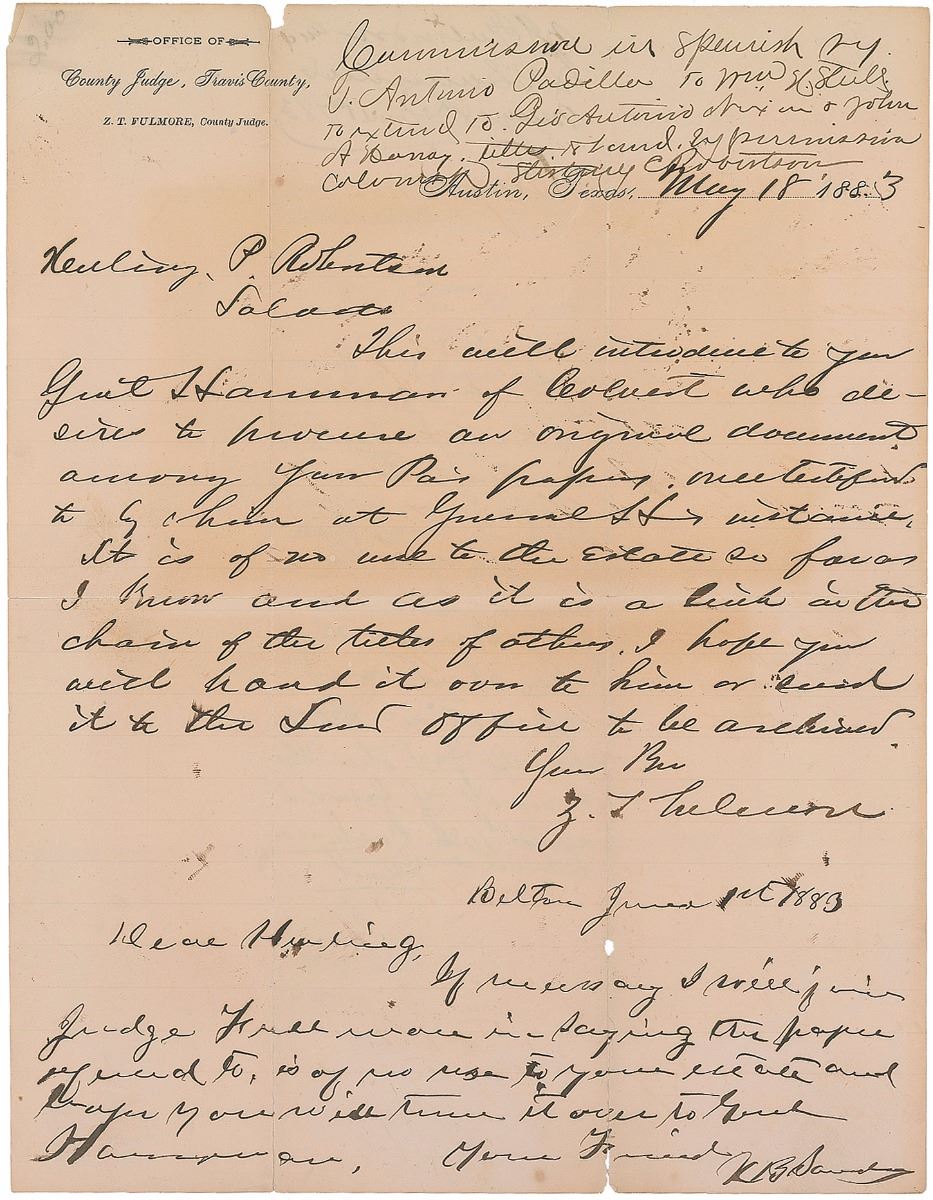 OFFICE OF
County Judge, Travis County,
Z. T. FULMORE, County Judge.
Commission in Spanish by
J. Antonio Padilla to Wm H. Steele
to extend to Geo Antonio Nixon & John
A titles & land by permission
colonist Sterling C Robertson
Austin, Texas, May 18 1883
Huling P. Robertson
Salado
This will introduce to you
Genl Hamman of Calvert who de-
sires to procure an original document
among your Pa's papers,
to by him at General H's instance.
It is of no use to the Estate so far as
I know and as it is a link in the
chain of the titles of others, I hope you
will hand it over to him or send
it to the Land Office to be archived.
Your
Z. T. Fulmore
Belton June 1st 1883
Dear Huling,
If necessary I will join
Judge Fullmore in saying the paper
referred to, is of no use to your estate and
hope you will turn it over to Genl
Hamman, Your Friend